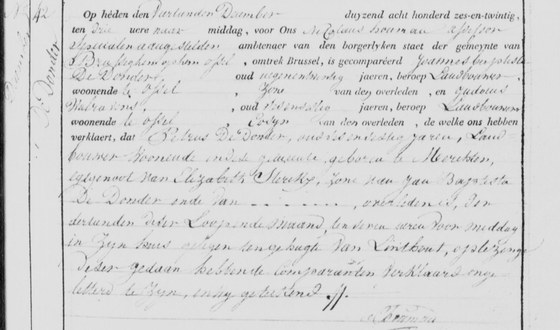 42
De Donder
Op héden den dertienden December duyzend acht honderd zes-en-twintig,
ten dry uere naer middag, voor Ons Nicolaus hooman assessor
specialen aengestelden ambtenaer van den borgerlyken staet der gemeynte van
Brusseghem ophem ossel, omtrek Brussel, is gecompareérd Joannes baptista
De Donder, oud negenentwintig jaeren, beroep Landbouwer
woonende te ossel, Zone van den overleden, en Gudovus
oud jaeren, beroep Landbouwer
woonende te ossel, van den overleden, de welke ons hebben
verklaert, dat Petrus De Donder, oud jaren, Land
bouwer woonende in dese gemeente geboren te Merchten,
egtgenoot van Elizabeth Sterckx, zone van Jan Baptista
De Donder ende van - - - - - - -, overleden is, den
dertienden deser Loopende maand, ten uren voor middag
in zyn huis gelegen ten gehugte van Linthout,
deser gedaen hebbende Comparanten verklaerd onge
letterd te zyn, en wy geteekend